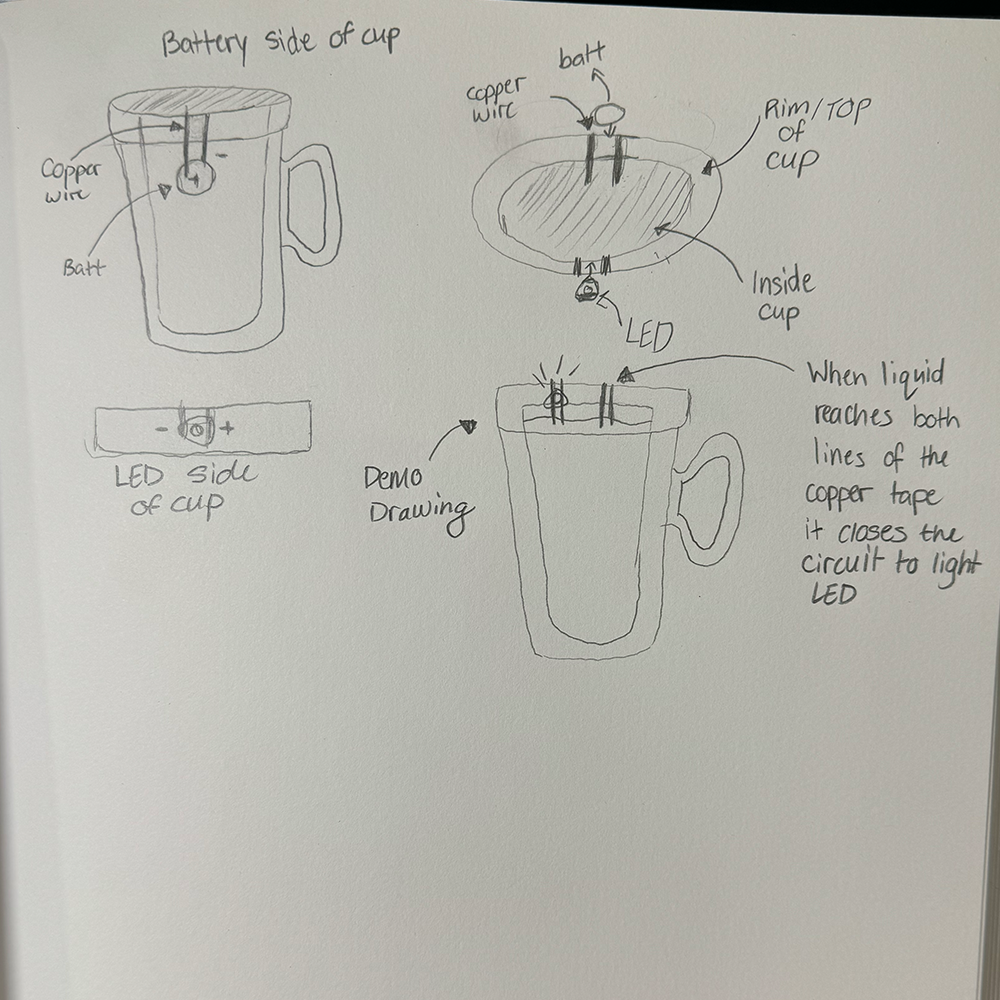 Battery side of cup
Copper
wire
Batt
-
+
batt
copper
wire
Rim/TOP
of
cup
Inside
cup
LED
- +
LED side
of cup
Demo
Drawing
When liquid
reaches both
lines of the
copper tape
it closes the
circuit to light
LED